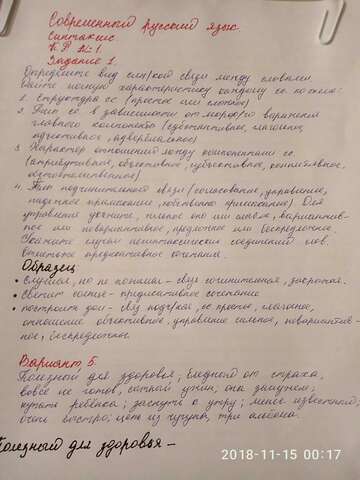 Современный русский язык.
Синтаксис
К.Р. №1.
Задание 1.
Определите вид син/кой связи между словами.
Дайте полную характеристику каждому сс по схеме:
1. Структура сс (простое или сложное)
2. Тип сс в зависимости от морфо/го выражения
главного компонента (субстантивное, глагольное,
адъективное, адвербиальное)
3. Характер отношений между компонентами сс
(атрибутивные, объективное, субъективное, комплетивное,
обстоятельственное)
4. Тип подчинительной связи (согласование, управление,
падежное примыкание, собственно примыкание) Для
управления укажите, сильное оно или слабое, вариантив-
ное или невариантивное, предложное или беспредложное.
Укажите случаи несинтаксических соединений слов.
Отметьте предикативные сочетания.
Образец
• слушал, но не понимал - связь сочинительная, закрытая.
• Светит солнце - предикативное сочетание
• построить дом - связь подч/ная, сс простое, глагольное,
отношение объективное, управление сильное, невариантив-
ное, беспредложное.
Вариант 5.
Полезный для здоровья, бледный от страха,
вовсе не готов, сытный ужин; она замужем;
купать ребёнка; заснуть к утру; менее известный;
очень быстро; цело из чугуна, три альбома.
Полезный для здоровья -
2018-11-15 00:17